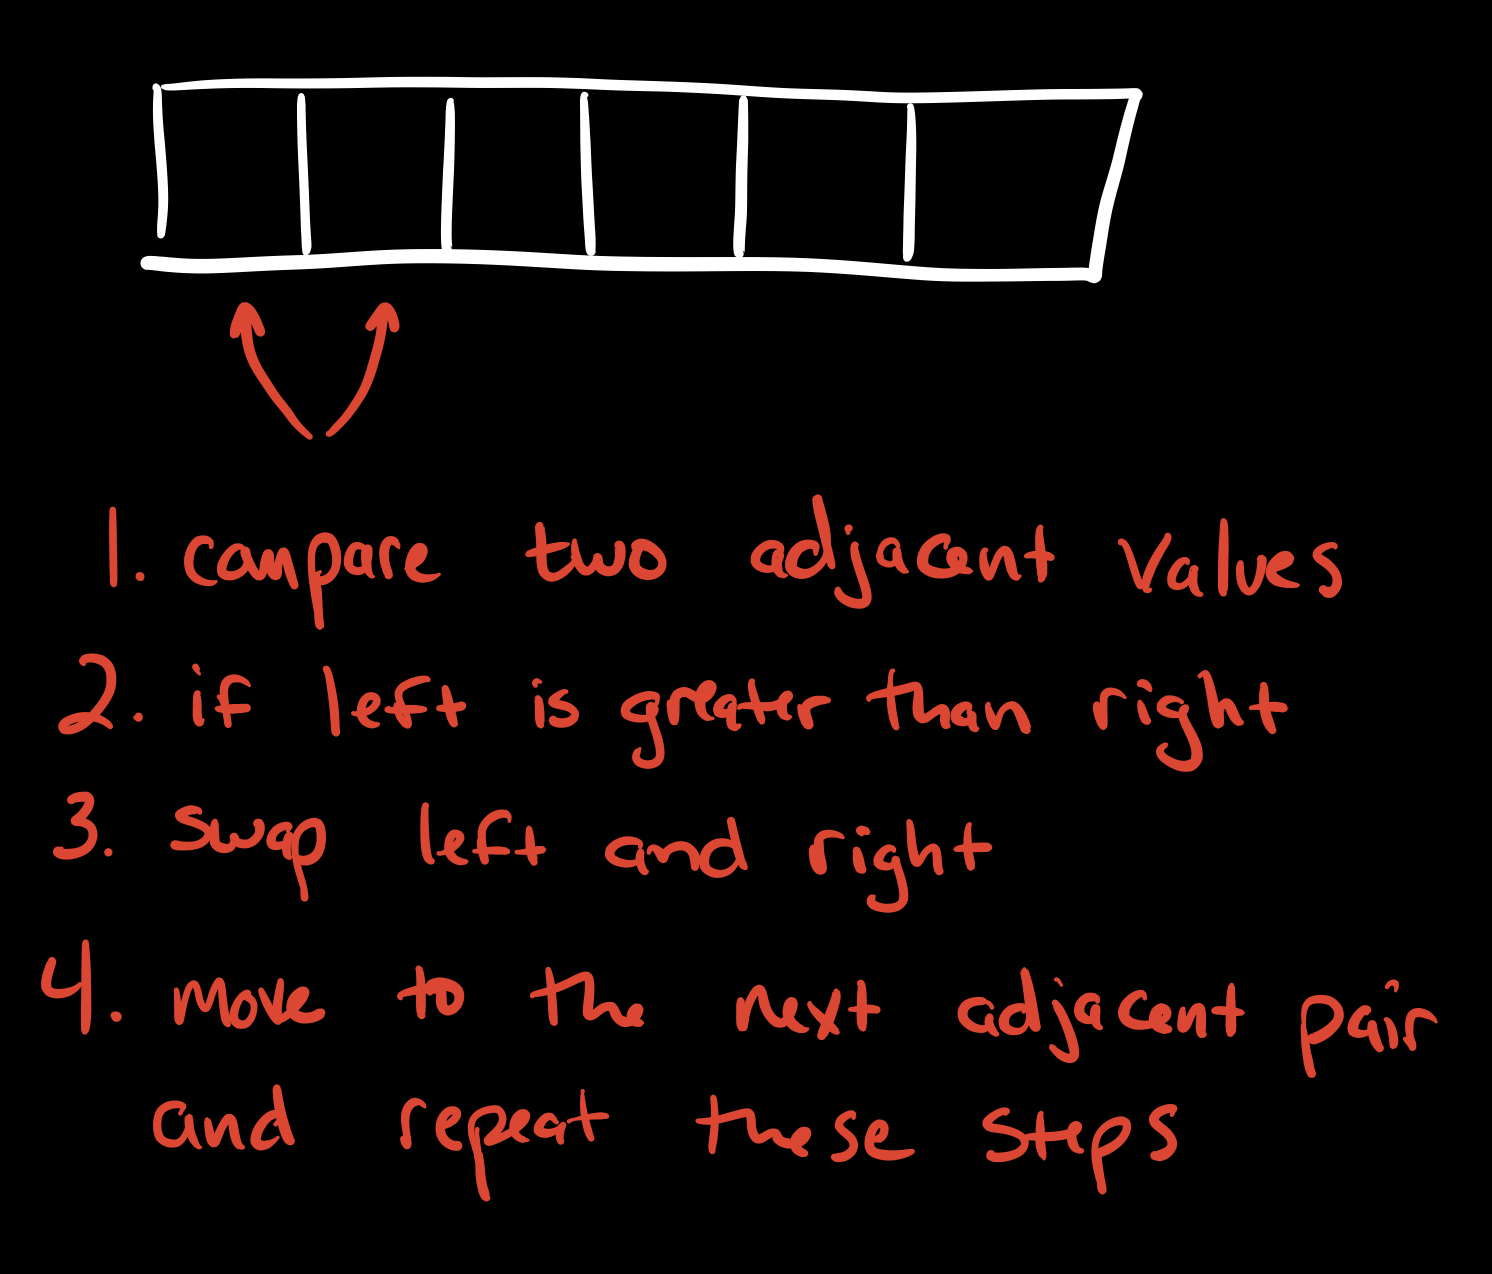 1. compare two adjacent values
2. if left is greater than right
3. swap left and right
4. move to the next adjacent pair
and repeat these steps